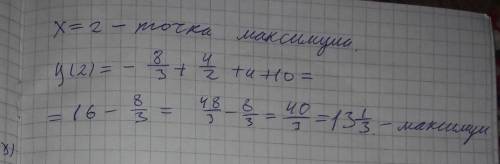 x=2 - точка максимума.
y(2) = - 8/3 + 4/2 + 4 + 10 =
= 16 - 8/3 = 48/3 - 8/3 = 40/3 = 13 1/3 - максимум